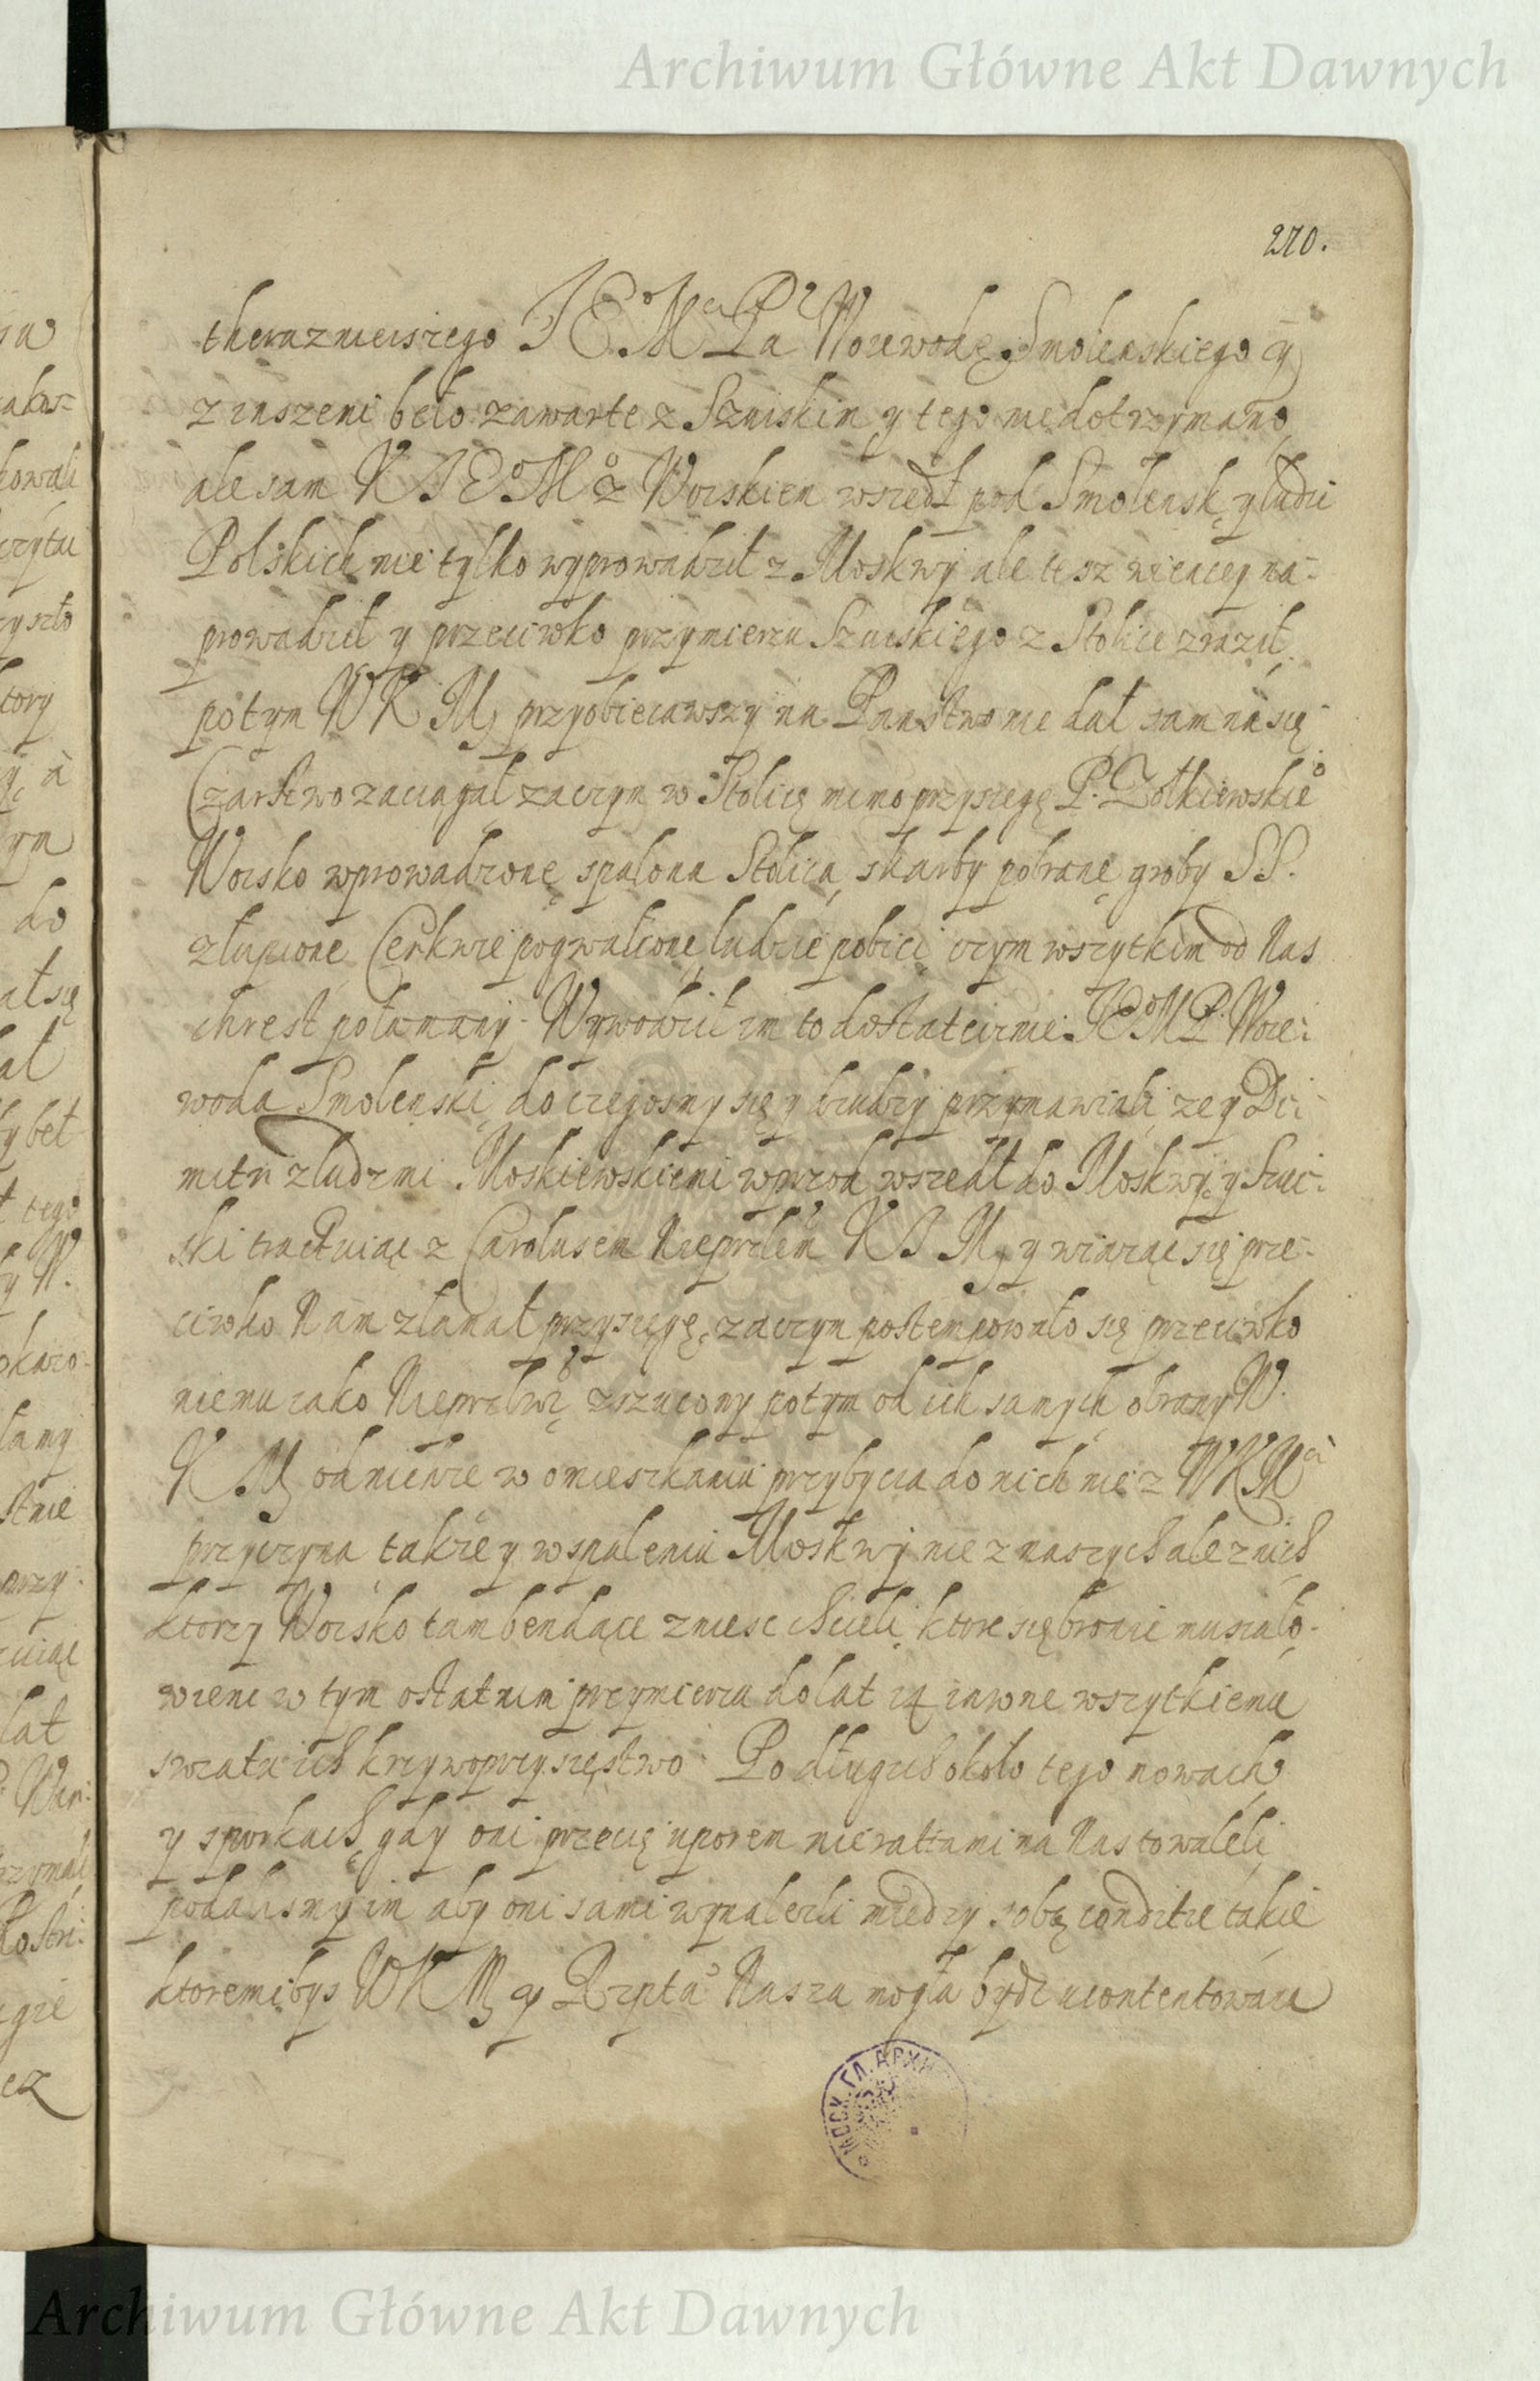 Archiwum Główne Akt Dawnych
270.
theraznieiszego JEº Mci Pª Woiewodę Smolenskiego y
z inszemi beło zawarte z Szuiskim y tego niedotrzymano
ale sam K J E Mº z Woiskiem wszedł pod Smolensk, y ludzi
Polskich nie tylko wyprowadził z Moskwy ale tesz wiencey na-
prowadził y przeciwko przymierzu Szuiskiego z Stolice zraził
potym W K M przyobiecawszy na Panstwo nie dał sam na się
Czarstwo zaciagał zaczym w Stolicę mimo przysięgę P. Zołkiewskiº
Woisko wprowadzonę spalona Stolica, skarby pobranę groby SS.
złupione Cerkwie pogwałconę ludzie pobici, czym wszytkim od Nas
chrest połamany. Wywodził im to dostatecznie JEº M P. Woie-
woda Smolenski, do czegosmy się y drudzy przymawiali, ze y Di-
mitr z ludzmi Moskiewskiemi wprzod wszedł do Moskwy, y Szui-
ski tractuiąc z Carolusem Nieprzłem K J M, y wiążąc się prze-
ciwko Nam złamał przysięgę, zaczym postempowało się przeciwko
niemu iako Nieprzlwi, zrzucony potym od ich samych obrany W.
K M odmienie w omieszkaniu przybycia do nich nie z W K Mci
przyczyna także y w spaleniu Moskwy nie z naszych ale z nich
ktorzy Woisko tam bendące zniesc chcieli, ktore się bronic musiało.
wienc w tym ostatnim przymierzu do lat 14 iawne wszytkiemu
swiatu ich krzywoprzysięstwo. Po długich około tego mowach
y sporkach, gdy oni przecię uporem nie ratiami na Nas towaleli,
podalismy im aby oni sami wynalezli miedzy sobą conditie takie
ktoremibys W K M y Rzpta Nasza mogła bydz ucontentowana
МОСК. ГЛ. АРХИ
Archiwum Główne Akt Dawnych